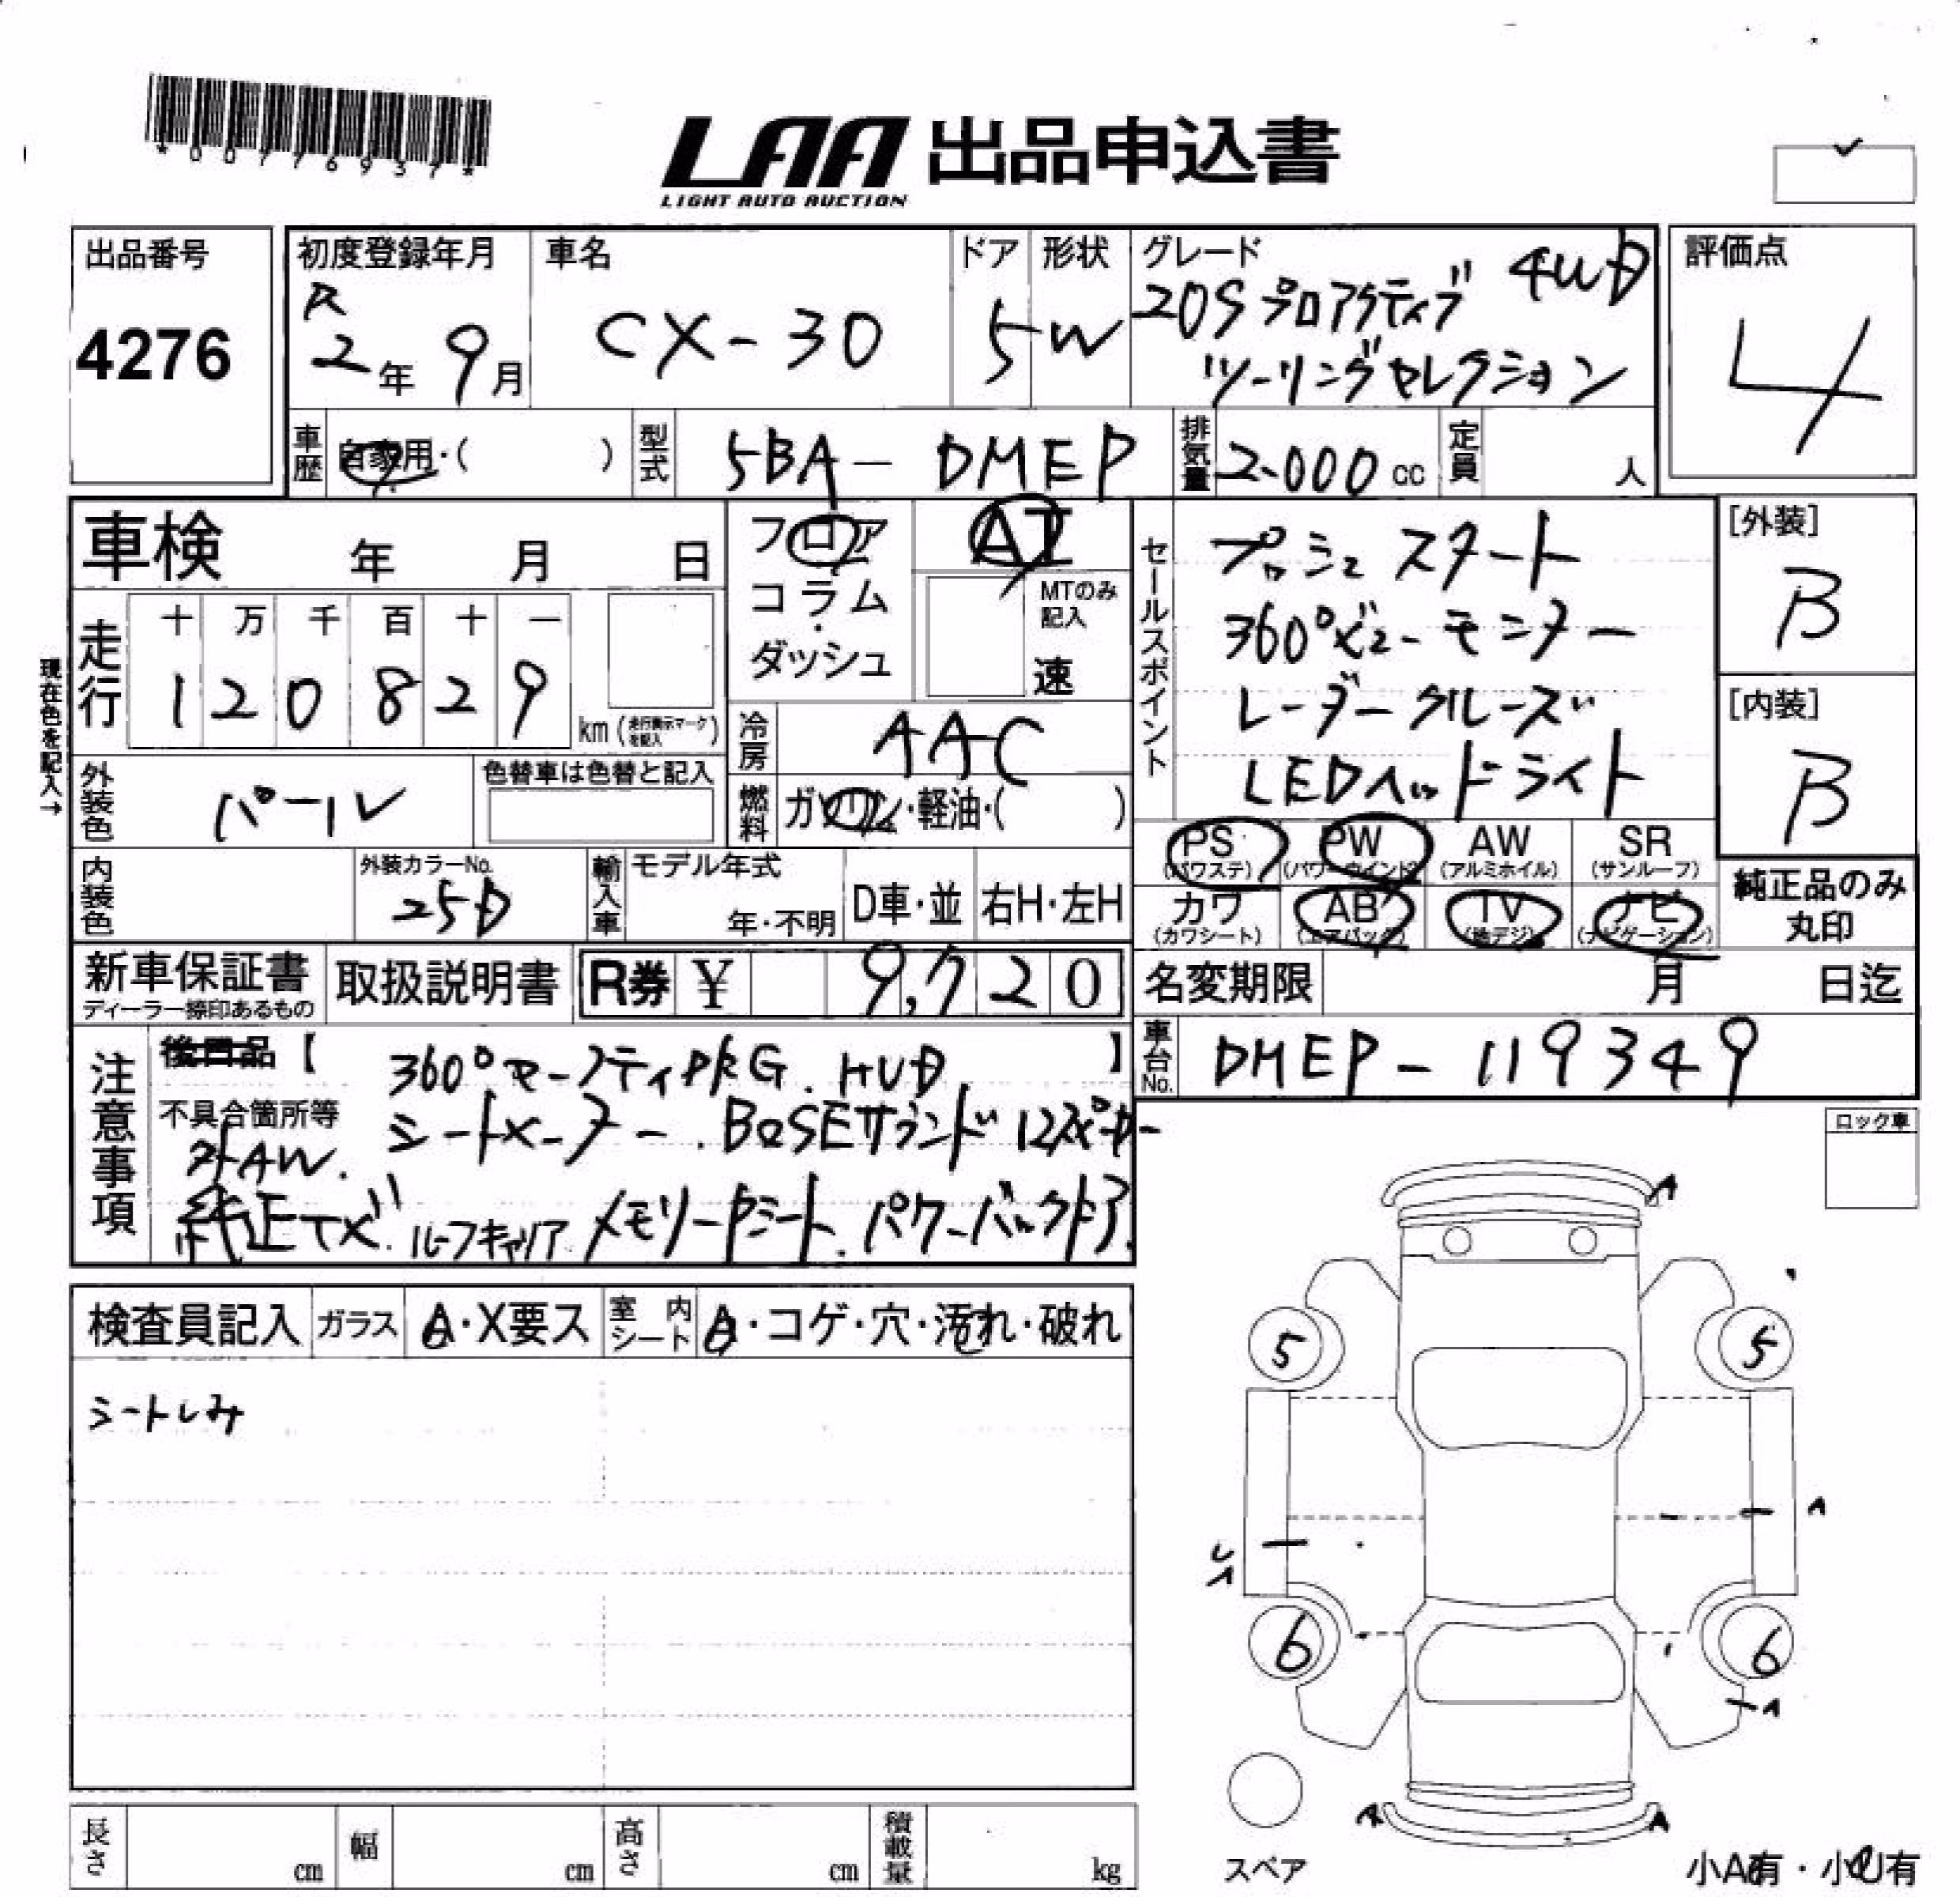 *00776937*
LAA 出品申込書
LIGHT AUTO AUCTION
出品番号
4276
初度登録年月
R
2年 9月
車名
CX-30
ドア
5
形状
W
グレード
20S プロアクティブ 4WD
ツーリングセレクション
評価点
4
車歴 自家用・( )
型式 5BA-DMEP
排気量 2.000 cc
定員 人
車検 年 月 日
フロア
コラム
・
ダッシュ
AT
MTのみ
記入
速
走行
十 万 千 百 十 一
1 2 0 8 2 9
km (走行表示マークを記入)
現在色を記入→
冷房 AAC
外装色 パール
色替車は色替と記入
燃料 ガソリン・軽油・( )
内装色
外装カラーNo.
25D
輸入車
モデル年式
年・不明
D車・並
右H・左H
セールスポイント
プッシュスタート
360°ビューモニター
レーダークルーズ
LEDヘッドライト
[外装]
B
[内装]
B
PS
(パワステ)
PW
(パワーウインド)
AW
(アルミホイル)
SR
(サンルーフ)
カワ
(カワシート)
AB
(エアバック)
TV
(地デジ)
ナビ
(ナビゲーション)
純正品のみ
丸印
新車保証書
ディーラー捺印あるもの
取扱説明書
R券 ¥ 9,720
名変期限 月 日迄
車台No. DMEP-119349
注意事項
後日品【 】
360°セーフティPKG. HUD.
不具合箇所等
シートヒーター. BOSEサウンド12スピーカー
外AW.
純正TV. ルーフキャリア. メモリーPシート. パワーバックドア.
ロック車
検査員記入
ガラス A・X要ス
室内シート A・コゲ・穴・汚れ・破れ
シートしみ
A
5 5
A
A
6 6
A
A A
スペア
小A有・小U有
長さ cm
幅 cm
高さ cm
積載量 kg